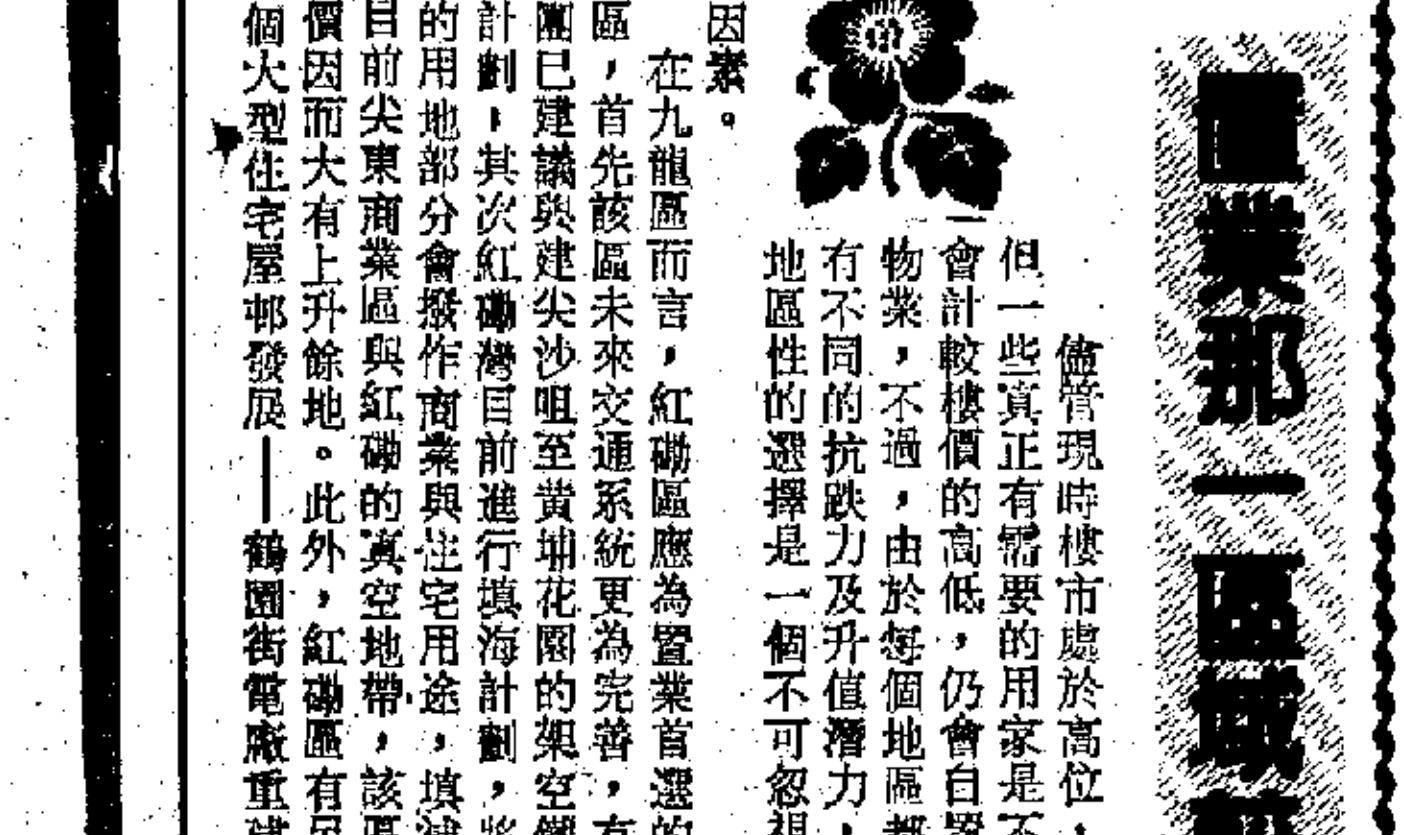 置業那一區域
儘管現時樓市處於高位，
但一些真正有需要的用家是不
會計較樓價的高低，仍會自置
物業，不過，由於每個地區都
有不同的抗跌力及升值潛力，
地區性的選擇是一個不可忽視
因素。
在九龍區而言，紅磡區應為置業首選的
區，首先該區未來交通系統更為完善，有
團已建議興建尖沙咀至黃埔花園的架空鐵
計劃，其次紅磡灣目前進行填海計劃，將
的用地部分會撥作商業與住宅用途，填
目前尖東商業區與紅磡的真空地帶，該區
價因而大有上升餘地。此外，紅磡區有
個大型住宅屋邨發展——鶴園街電廠重建